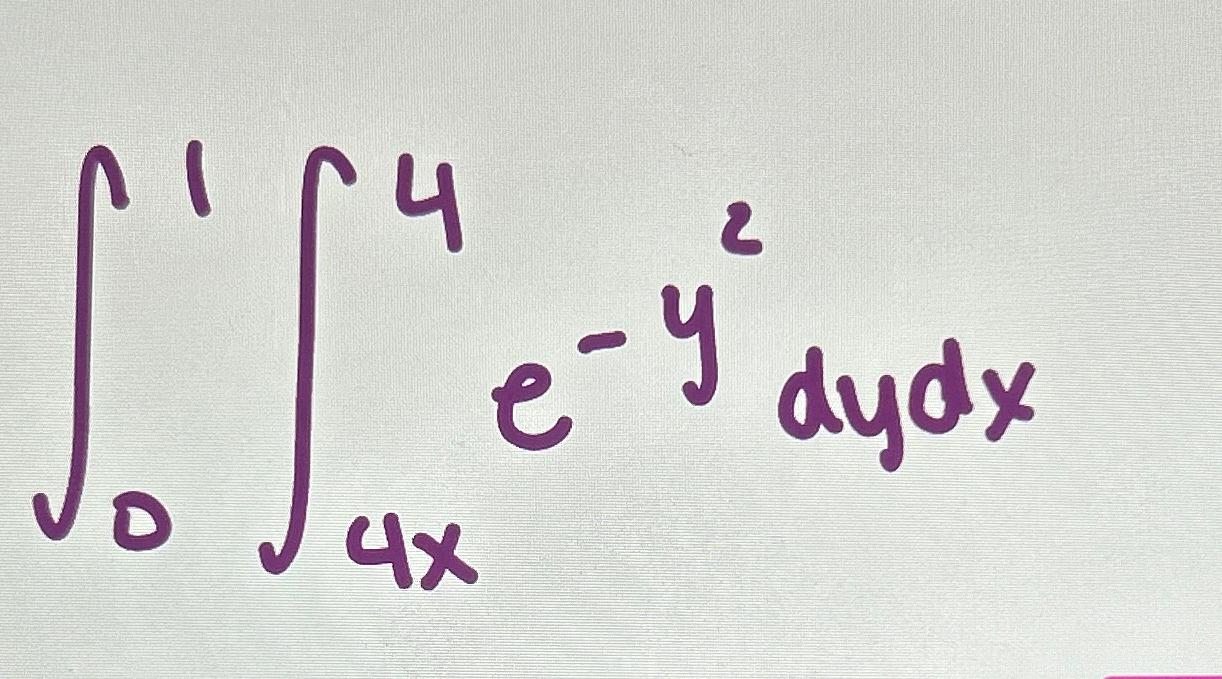 ∫₀¹ ∫₄ₓ⁴ e^{-y²} dydx